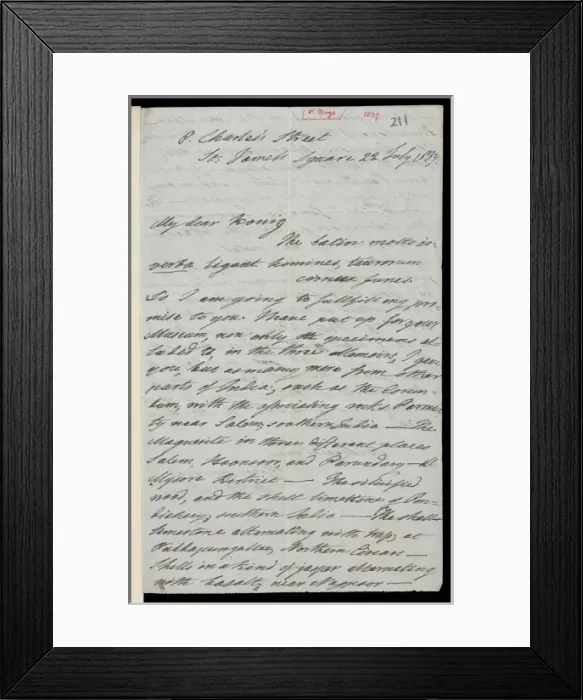 1839 211
8. Charles Street
St. James's Square 22 July 1839.
My dear Konig
The latin motto is
verba ligant homines, taurorum
cornua funes.
So I am going to fullfill my pro-
mise to you. I have put up for your
Museum, non only the specimens al
luded to, in the three memoirs, I gave
you, but as many more from other
parts of India; such as the Corun-
dum, with the associating rocks
ty near Salem, southern India — The
Magnesite in three different places
Salem, and
Mysore District — The silicified
wood, and the shell limestone of Pon-
dichery, southern India — The shell
limestone alternating with trap, at
Northern Circars —
Shells in a kind of jasper alternating
with basalt, near Nagpoor —